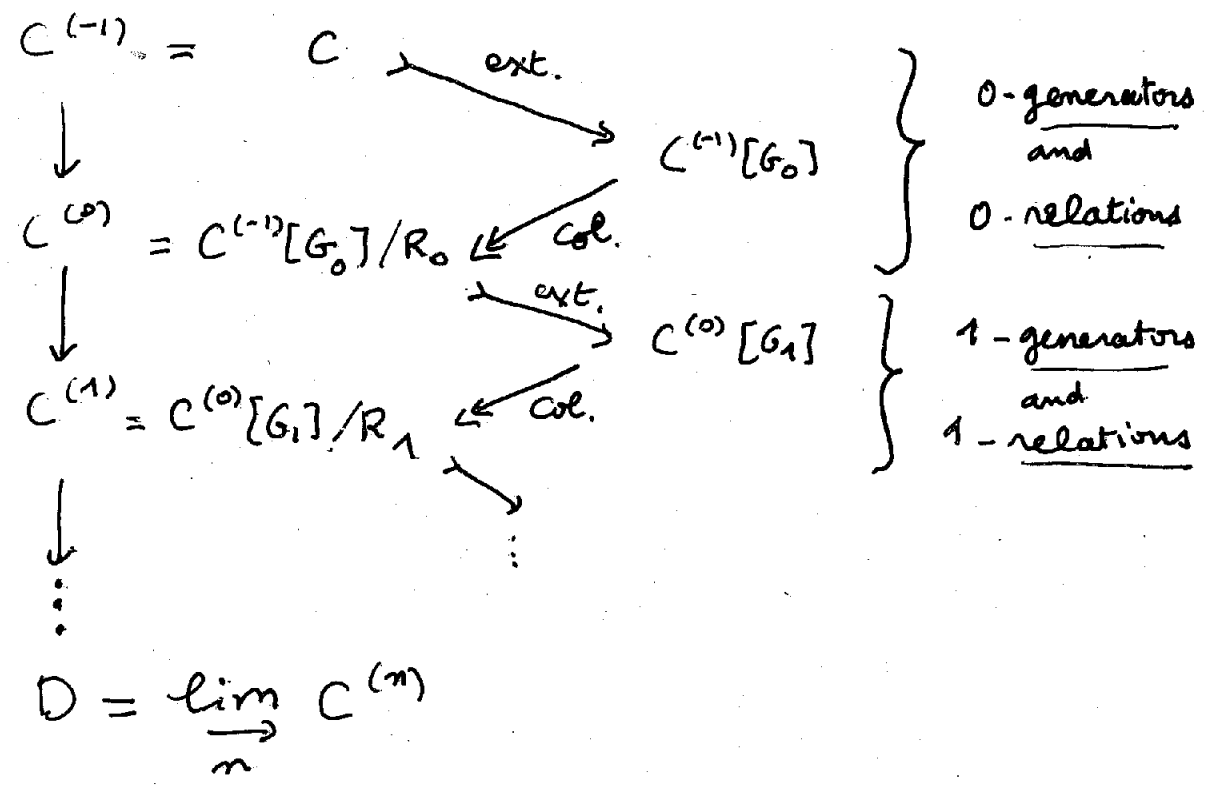 C^(-1) = C ext.
C^(-1)[G_0]
0-generators
and
0-relations
C^(0) = C^(-1)[G_0]/R_0 col.
ext.
C^(0)[G_1]
1-generators
and
1-relations
C^(1) = C^(0)[G_1]/R_1 col.
⋮
⋮
D = lim C^(n)
n